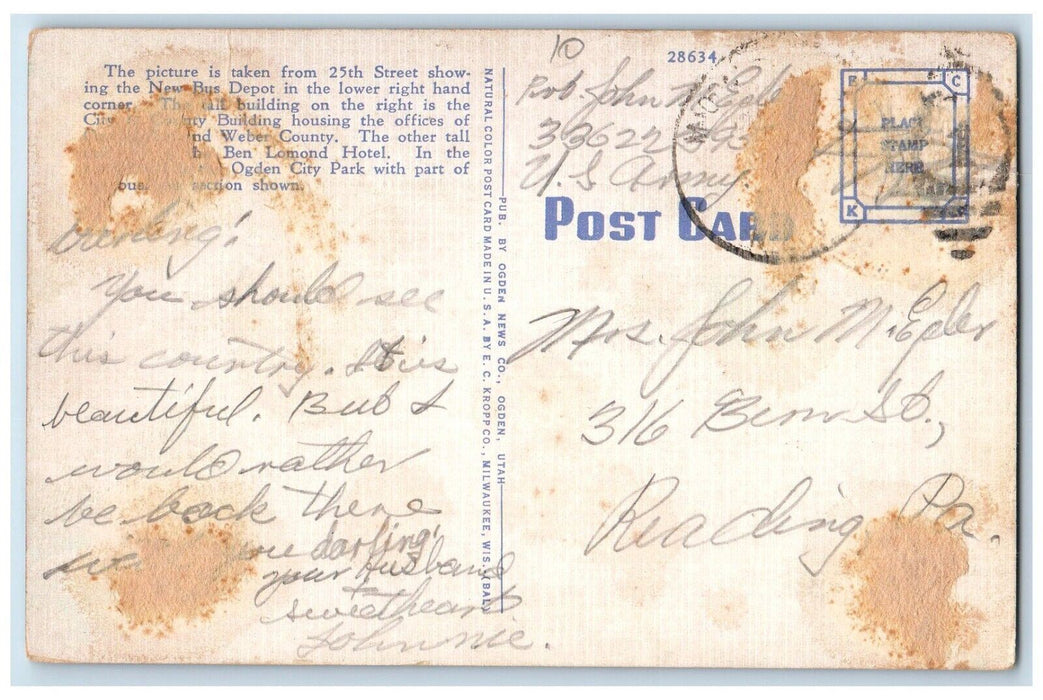 The picture is taken from 25th Street show-
ing the New Bus Depot in the lower right hand
corner. The tall building on the right is the
City & County Building housing the offices of
and Weber County. The other tall
Ben Lomond Hotel. In the
Ogden City Park with part of
section shown.
Darling!
You should see
this country. It is
beautiful. But I
would rather
be back there
darling.
your husband
sweetheart
Johnnie.
NATURAL COLOR POST CARD MADE IN U.S.A. BY E. C. KROPP CO., MILWAUKEE, WIS. (BAL)
PUB. BY OGDEN NEWS CO., OGDEN, UTAH
10
28634
John M.
U.S Army
PLACE
STAMP
HERE
E C
K
POST CARD
Mrs. John M.
316 St.,
Reading Pa.